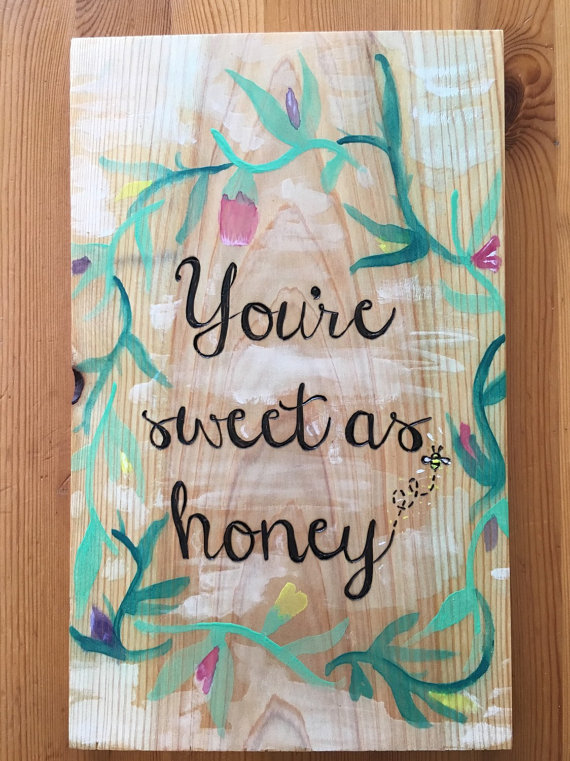 You're
sweet as
honey